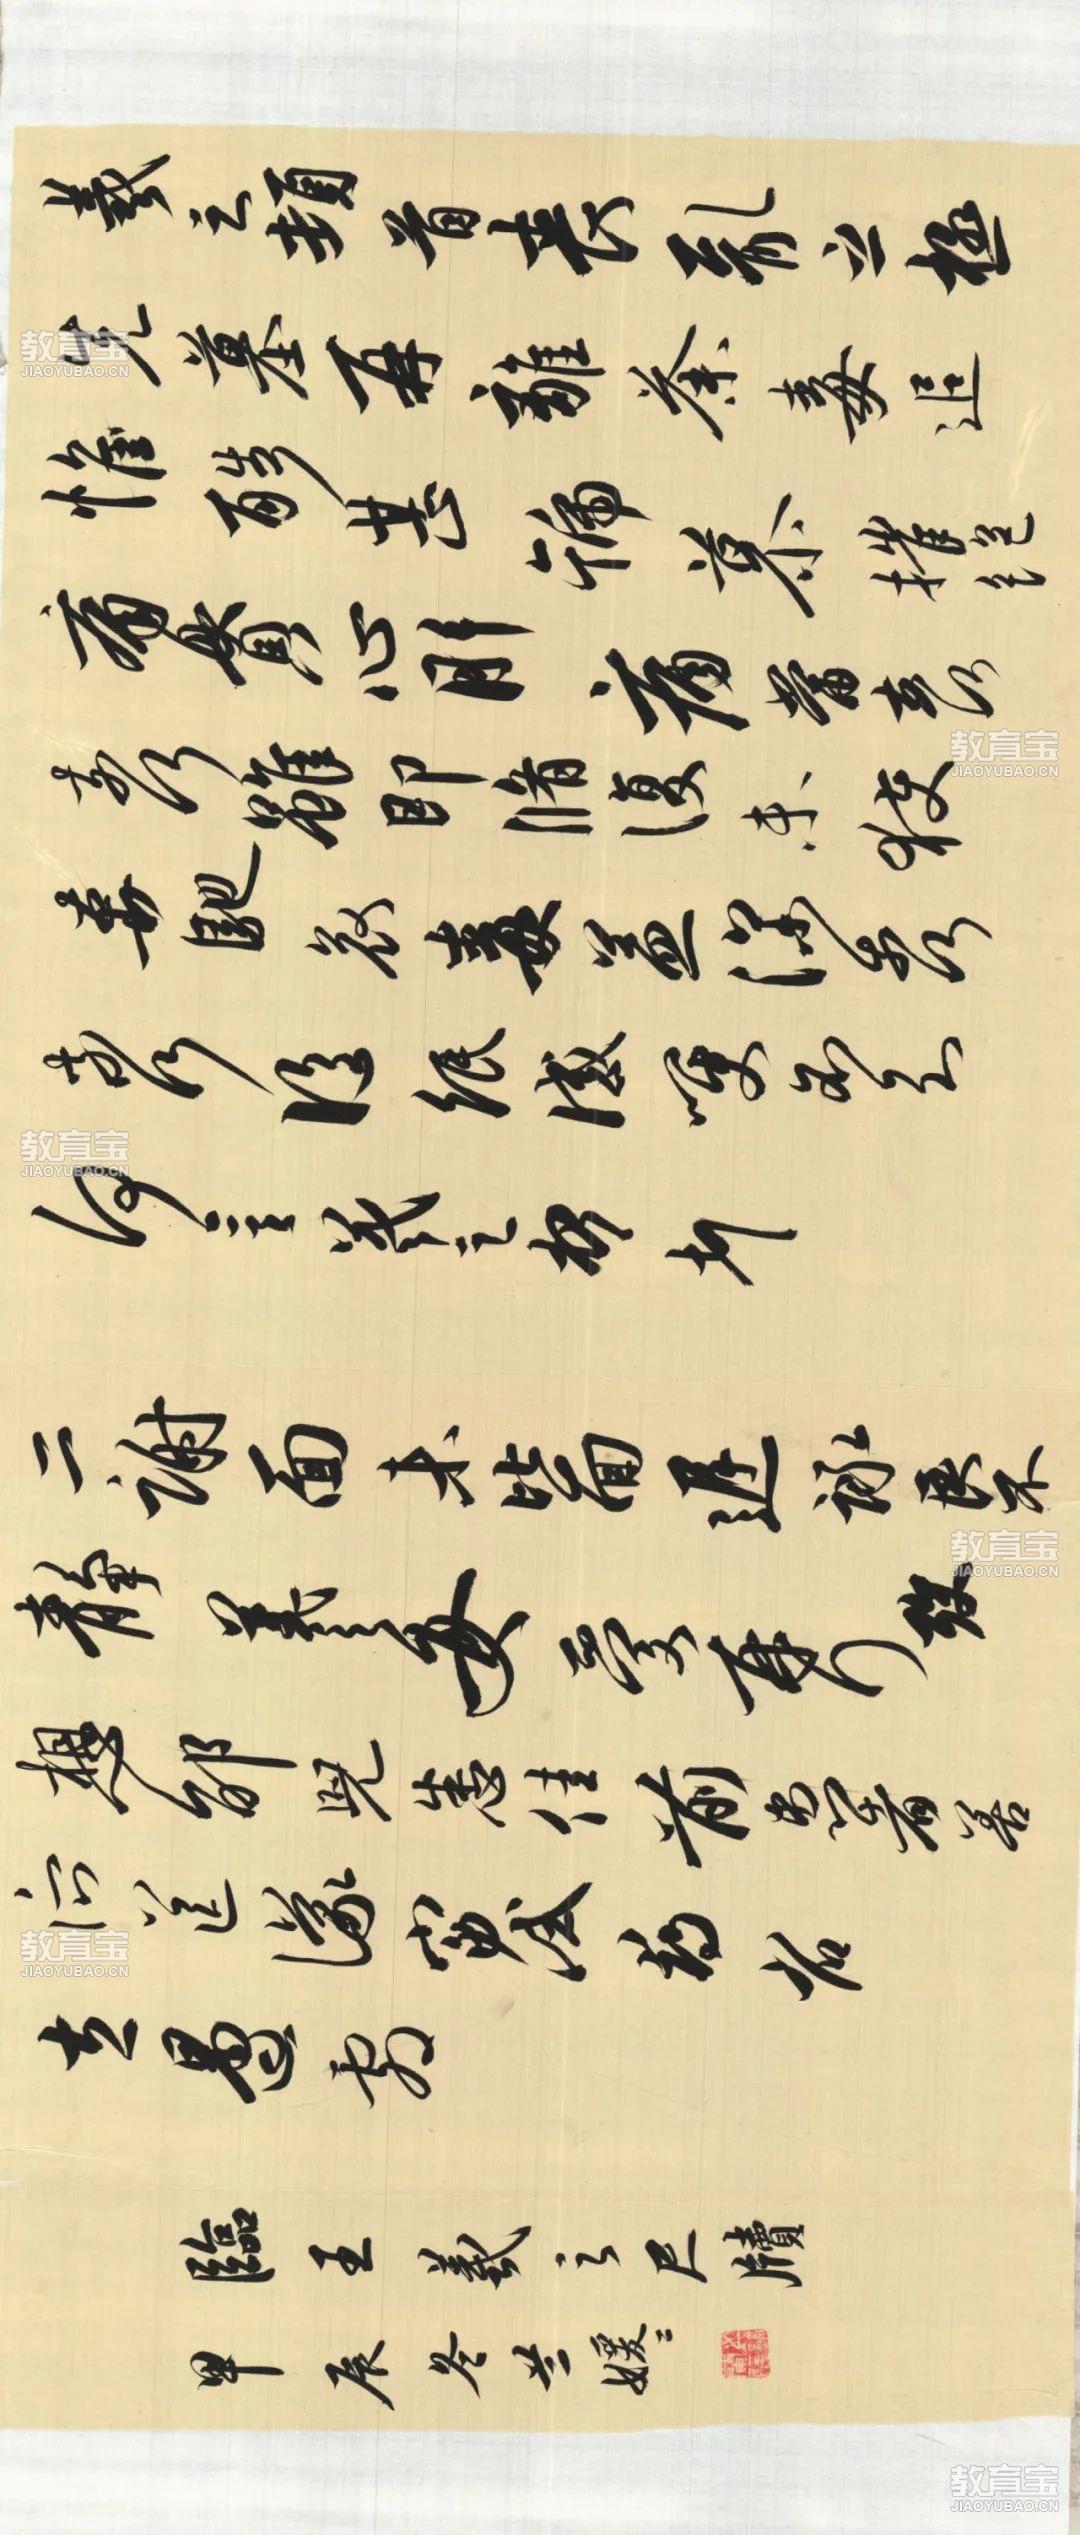 羲之頓首喪亂之極
先墓再離荼毒追
惟酷甚號慕摧絕
痛貫心肝痛當奈何
奈何雖即脩復未獲
奔馳哀毒益深奈何
奈何臨紙感哽不知
何言羲之頓首
二謝面未比面遲詠良不
靜羲之女愛再拜想
邰兒悉佳前患者善
所送議當試尋省
左邊劇
臨王羲之尺牘
甲辰冬
教育宝
JIAOYUBAO.CN
教育宝
JIAOYUBAO.CN
教育宝
JIAOYUBAO.CN
教育宝
JIAOYUBAO.CN
教育宝
JIAOYUBAO.CN
教育宝
JIAOYUBAO.CN